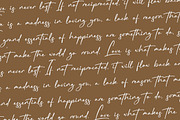 is never lost. If not reciprocated, it will flow back
is a madness in loving you, a lack of reason that
grand essentials of happiness are something to do, some
not make the world go round. Love is what makes
is never lost. If not reciprocated, it will flow back
is a madness in loving you, a lack of reason that
grand essentials of happiness are something to do, som
not make the world go round. Love is what makes th